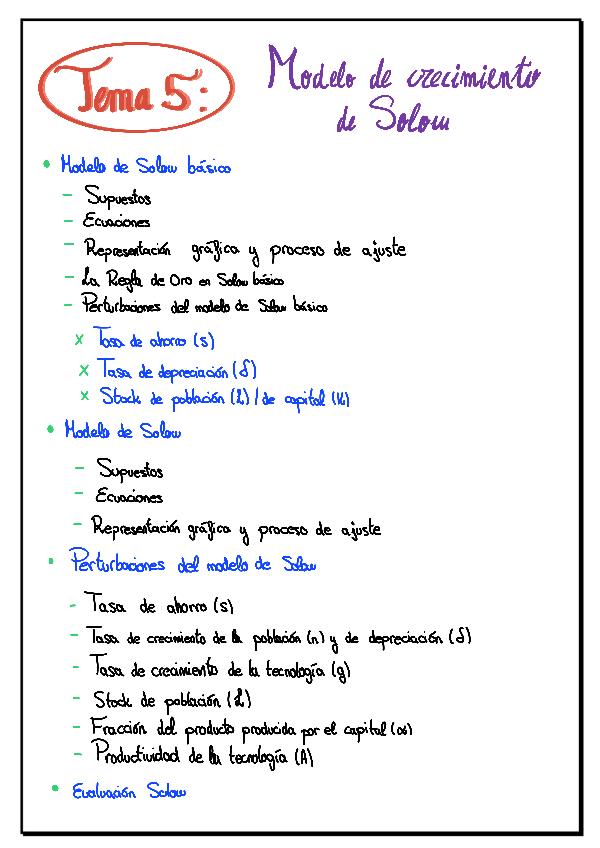 Tema 5:
Modelo de crecimiento
de Solow
• Modelo de Solow básico
- Supuestos
- Ecuaciones
- Representación gráfica y proceso de ajuste
- La Regla de Oro en Solow básico
- Perturbaciones del modelo de Solow básico
x Tasa de ahorro (s)
x Tasa de depreciación (δ)
x Stock de población (L) / de capital (K)
• Modelo de Solow
- Supuestos
- Ecuaciones
- Representación gráfica y proceso de ajuste
• Perturbaciones del modelo de Solow
- Tasa de ahorro (s)
- Tasa de crecimiento de la población (n) y de depreciación (δ)
- Tasa de crecimiento de la tecnología (g)
- Stock de población (L)
- Fracción del producto producida por el capital (α)
- Productividad de la tecnología (A)
• Evaluación Solow